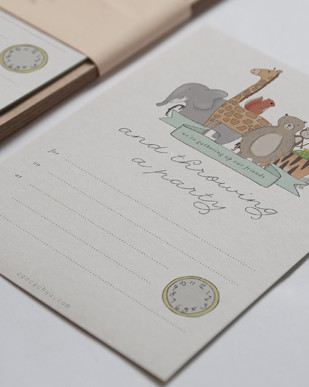 we're gathering up our friends
and throwing
a party
for
on
at